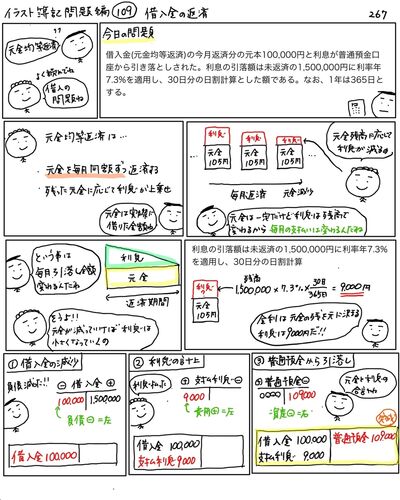 イラスト簿記問題編 109 借入金の返済 267
元金均等返済
よく読んでね
借入の問題ね
今日の問題
借入金(元金均等返済)の今月返済分の元本100,000円と利息が普通預金口
座から引き落としされた。利息の引落額は未返済の1,500,000円に利率年
7.3%を適用し、30日分の日割計算とした額である。なお、1年は365日と
する。
元金均等返済は…
・元金を毎月同額ずつ返済する
・残った元金に応じて利息が上乗せ
元金は実際に
借りた金額ね
利息 利息 利息
元金 元金 元金
10万円 10万円 10万円
毎月返済 元金減少
元金残高に応じて
利息が減るね
元金は一定だけど利息は残高で
変わるから毎月の支払いは変わるんだね
という事は
毎月引落し金額
変わるんだね
利息
元金
返済期間
そうよ!!
元金が減っていけば利息は
小さくなっていくの
利息の引落額は未返済の1,500,000円に利率年7.3%
を適用し、30日分の日割計算
利息
元金
10万円
残高
1,500,000 × 7.3% × 30日/365日 = 9,000円
利息は9,000円だ!!
① 借入金の減少
負債減だ!!
⊖ 借入金 ⊕
100,000 1,500,000
負債⊖=左
借入金 100,000
② 利息の計上
⊕ 支払利息 ⊖
9,000
費用⊕=左
借入金 100,000
支払利息 9,000
③ 普通預金から引落し
⊕ 普通預金 ⊖
109,000
資産⊖=右
元金と利息の
合計ね
借入金 100,000 普通預金 109,000
支払利息 9,000